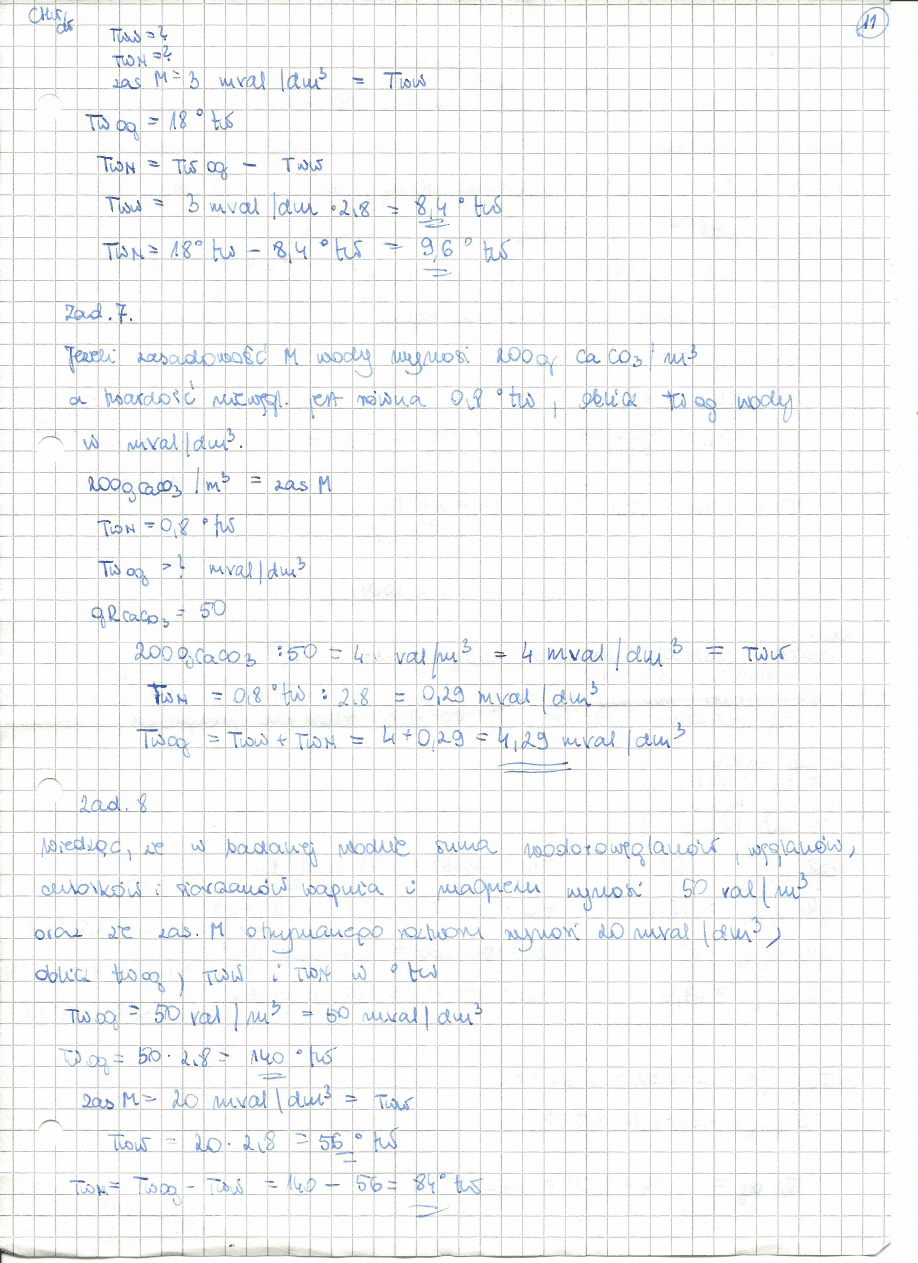 11
Tww = ?
TwN = ?
zas M = 3 mval/dm³ = Tww
Tw og = 18 °tw
TwN = Tw og - Tww
Tww = 3 mval/dm · 2,8 = 8,4 °tw
TwN = 18° tw - 8,4 °tw = 9,6 ° tw
Zad. 7.
Jeżeli zasadowość M wody wynosi 200g CaCO3/m³
a twardość niewęgl. jest równa 0,8 °tw, oblicz tw og wody
w mval/dm³.
200g CaCO3/m³ = zas M
TwN = 0,8 °tw
Tw og = ? mval/dm³
gR CaCO3 = 50
200g CaCO3 : 50 = 4 val/m³ = 4 mval/dm³ = Tww
TwN = 0,8 °tw : 2,8 = 0,29 mval/dm³
Tw og = Tww + TwN = 4 + 0,29 = 4,29 mval/dm³
Zad. 8
Wiedząc, że w badanej wodzie suma wodorowęglanów, węglanów,
chlorków i siarczanów wapnia i magnezu wynosi 50 val/m³
oraz że zas. M otrzymanego roztworu wynosi 20 mval/dm³,
oblicz tw og, Tww i TwN w °tw
Tw og = 50 val/m³ = 50 mval/dm³
Tw og = 50 · 2,8 = 140 °tw
zas M = 20 mval/dm³ = Tww
Tww = 20 · 2,8 = 56 ° tw
TwN = Tw og - Tww = 140 - 56 = 84° tw